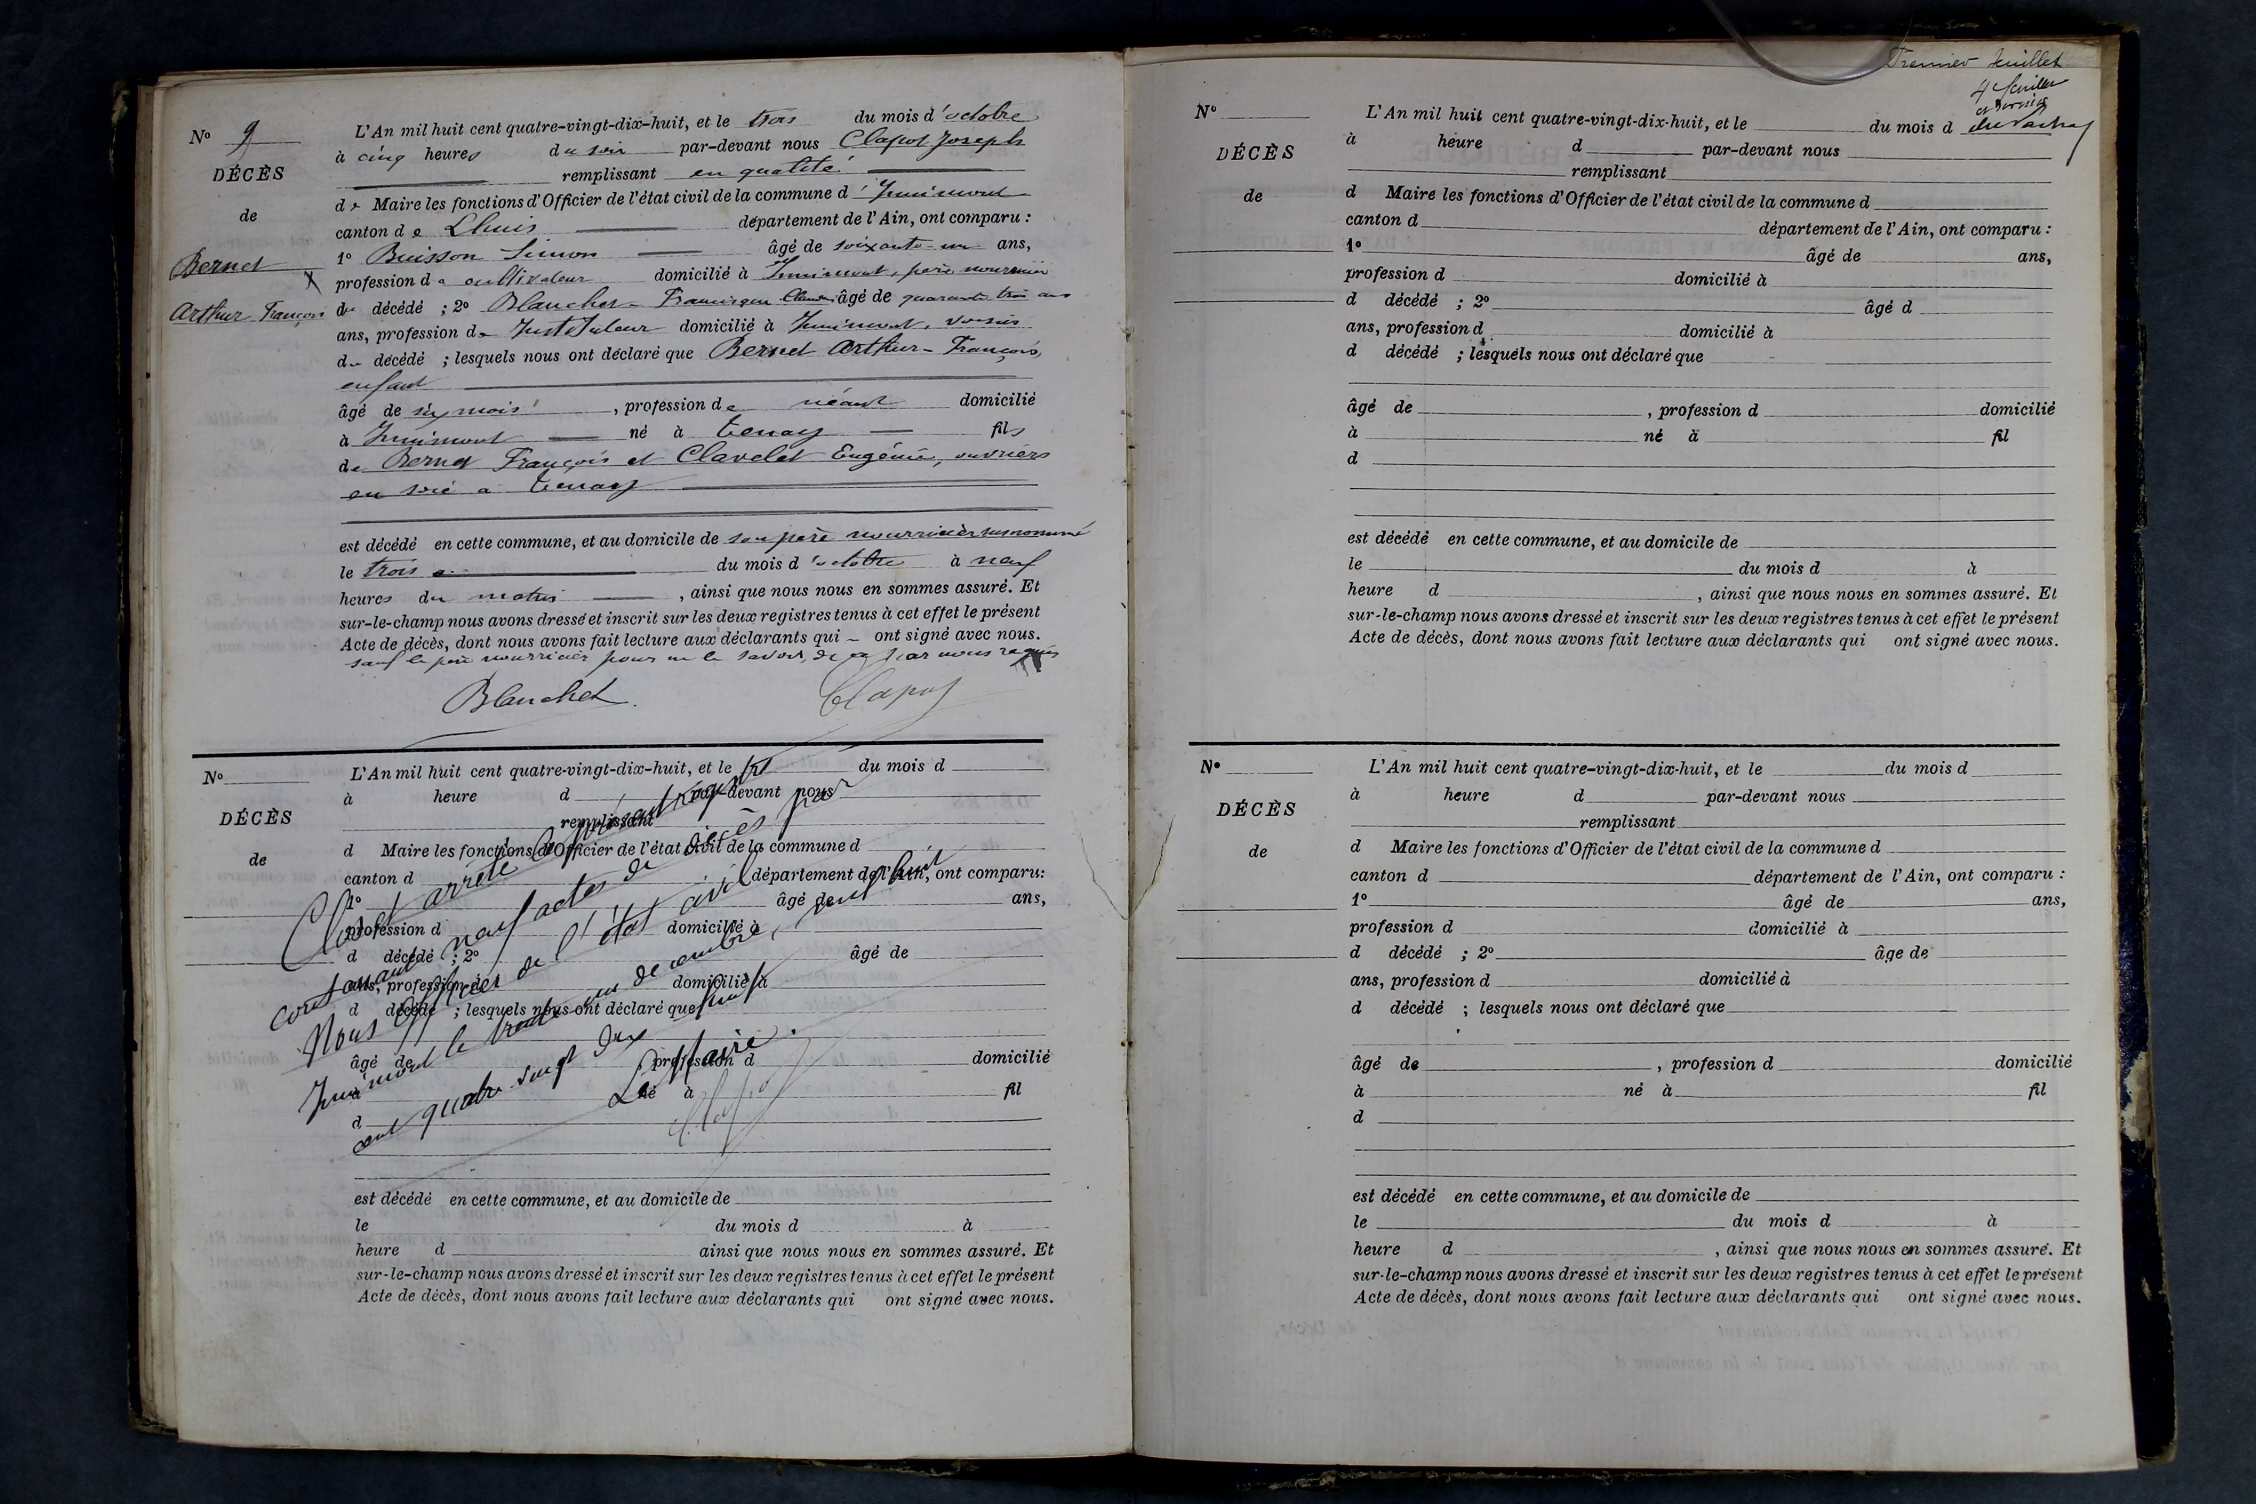 N° 9
DÉCÈS
de
Bernet
Arthur François
L'An mil huit cent quatre-vingt-dix-huit, et le trois du mois d'octobre
à cinq heures du soir par-devant nous Clapot Joseph
remplissant en qualité
de Maire les fonctions d'Officier de l'état civil de la commune d'Innimont
canton de Lhuis département de l'Ain, ont comparu :
1° Buisson Simon âgé de soixante-un ans,
profession de cultivateur domicilié à Innimont, père nourricier
du décédé ; 2° Blanchet Francisque Claude âgé de quarante trois ans
ans, profession de Instituteur domicilié à Innimont, voisin
du décédé ; lesquels nous ont déclaré que Bernet Arthur-François,
enfant
âgé de six mois, profession de néant domicilié
à Innimont né à Tenay fils
de Bernet François et Clavelet Eugénie, ouvriers
en soie à Tenay
est décédé en cette commune, et au domicile de son père nourricier susnommé
le trois du mois d'octobre à neuf
heures du matin, ainsi que nous nous en sommes assuré. Et
sur-le-champ nous avons dressé et inscrit sur les deux registres tenus à cet effet le présent
Acte de décès, dont nous avons fait lecture aux déclarants qui ont signé avec nous.
sauf le père nourricier pour ne le savoir, de ce par nous requis
Blanchet Clapot
N°
DÉCÈS
de
L'An mil huit cent quatre-vingt-dix-huit, et le du mois d
à heure d par-devant nous
remplissant
d Maire les fonctions d'Officier de l'état civil de la commune d
canton d département de l'Ain, ont comparu:
1° âgé de ans,
profession d domicilié à
d décédé ; 2° âgé de
ans, profession d domicilié à
d décédé ; lesquels nous ont déclaré que
âgé de profession d domicilié
à né à fil
d
est décédé en cette commune, et au domicile de
le du mois d à
heure d ainsi que nous nous en sommes assuré. Et
sur-le-champ nous avons dressé et inscrit sur les deux registres tenus à cet effet le présent
Acte de décès, dont nous avons fait lecture aux déclarants qui ont signé avec nous.
Clos et arrêté le présent registre
contenant neuf actes de décès par
Nous officier de l'état civil
Innimont le trente un décembre, mil huit
cent quatre vingt dix huit
Le Maire.
Clapot
Premier feuillet
4 feuillet
et dernier
N°
DÉCÈS
de
L'An mil huit cent quatre-vingt-dix-huit, et le du mois d
à heure d par-devant nous
remplissant
d Maire les fonctions d'Officier de l'état civil de la commune d
canton d département de l'Ain, ont comparu :
1° âgé de ans,
profession d domicilié à
d décédé ; 2° âgé d
ans, profession d domicilié à
d décédé ; lesquels nous ont déclaré que
âgé de , profession d domicilié
à né à fil
d
est décédé en cette commune, et au domicile de
le du mois d à
heure d , ainsi que nous nous en sommes assuré. Et
sur-le-champ nous avons dressé et inscrit sur les deux registres tenus à cet effet le présent
Acte de décès, dont nous avons fait lecture aux déclarants qui ont signé avec nous.
N°
DÉCÈS
de
L'An mil huit cent quatre-vingt-dix-huit, et le du mois d
à heure d par-devant nous
remplissant
d Maire les fonctions d'Officier de l'état civil de la commune d
canton d département de l'Ain, ont comparu :
1° âgé de ans,
profession d domicilié à
d décédé ; 2° âge de
ans, profession d domicilié à
d décédé ; lesquels nous ont déclaré que
âgé de , profession d domicilié
à né à fil
d
est décédé en cette commune, et au domicile de
le du mois d à
heure d , ainsi que nous nous en sommes assuré. Et
sur-le-champ nous avons dressé et inscrit sur les deux registres tenus à cet effet le présent
Acte de décès, dont nous avons fait lecture aux déclarants qui ont signé avec nous.